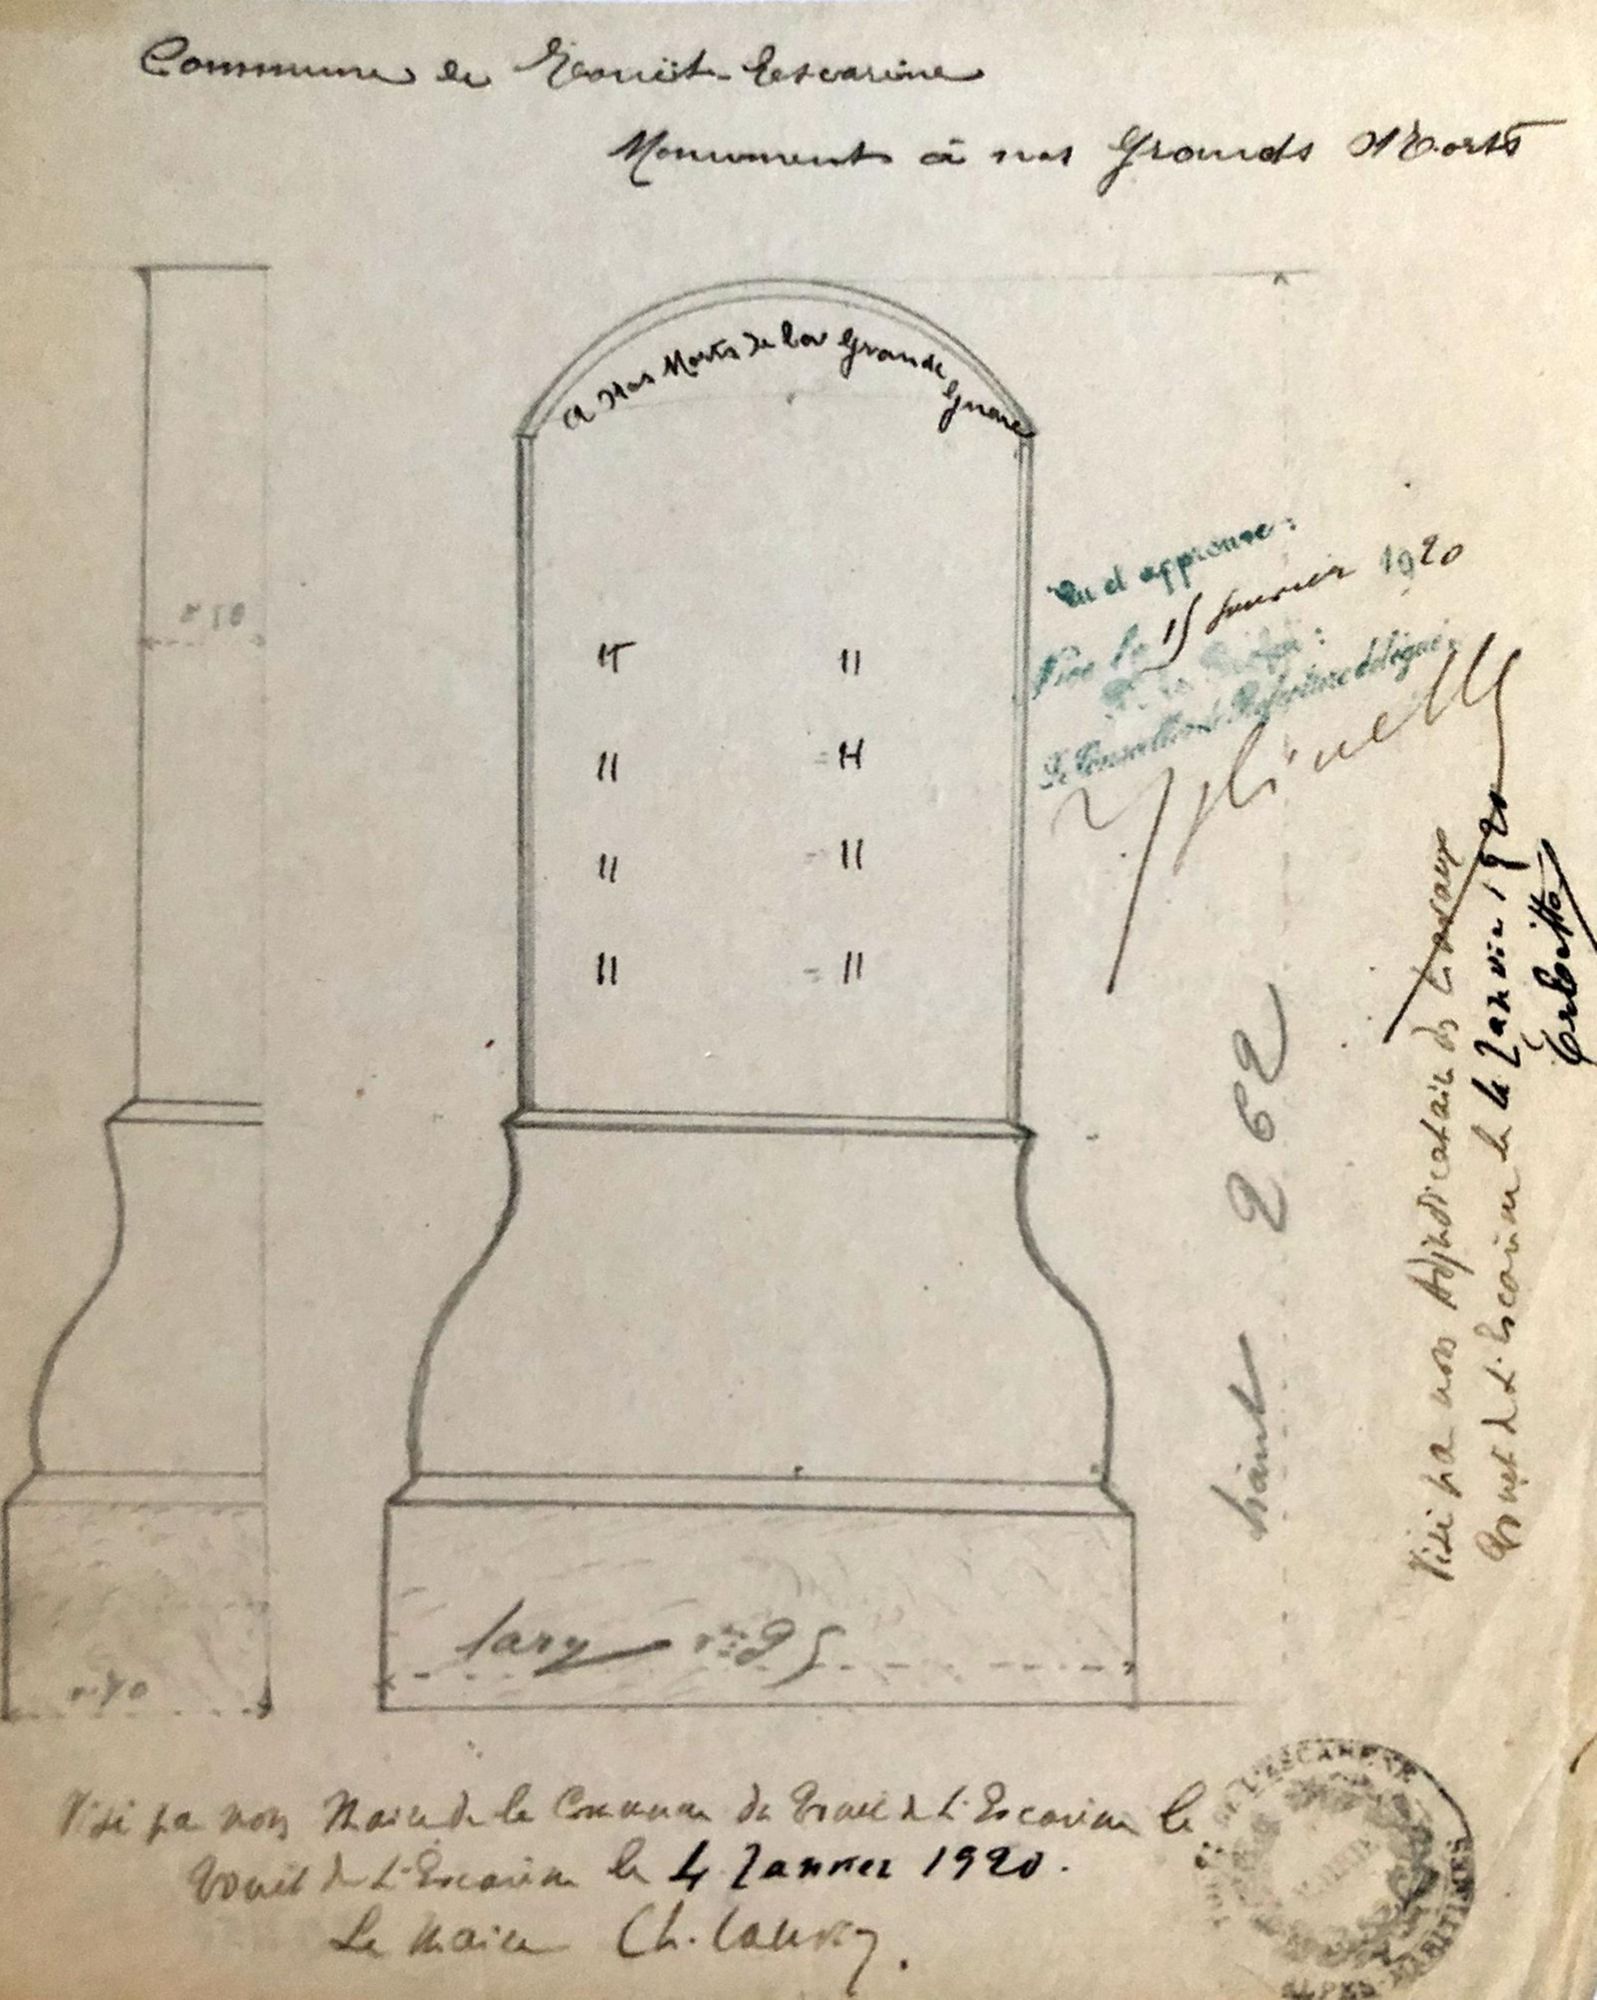 Commune de Touët-Escarène
Monument à nos Grands Morts
A Nos Morts de la Grande Guerre
0 10
" "
" "
" "
" "
Vu et approuvé :
Nice le 15 Janvier 1920
Le Conseiller de Préfecture délégué,
haut 2 62
larg 0m 95
Visé par nous Adjudicataire des travaux
Touet de L'Escarène le 4 Janvier 1920
Visé par nous Maire de la Commune de Touët de L'Escarène le
Touët de L'Escarène le 4 Janvier 1920.
Le Maire Ch. 
DE L'ESCARÈNE
MAIRIE
ALPES-MARITIMES